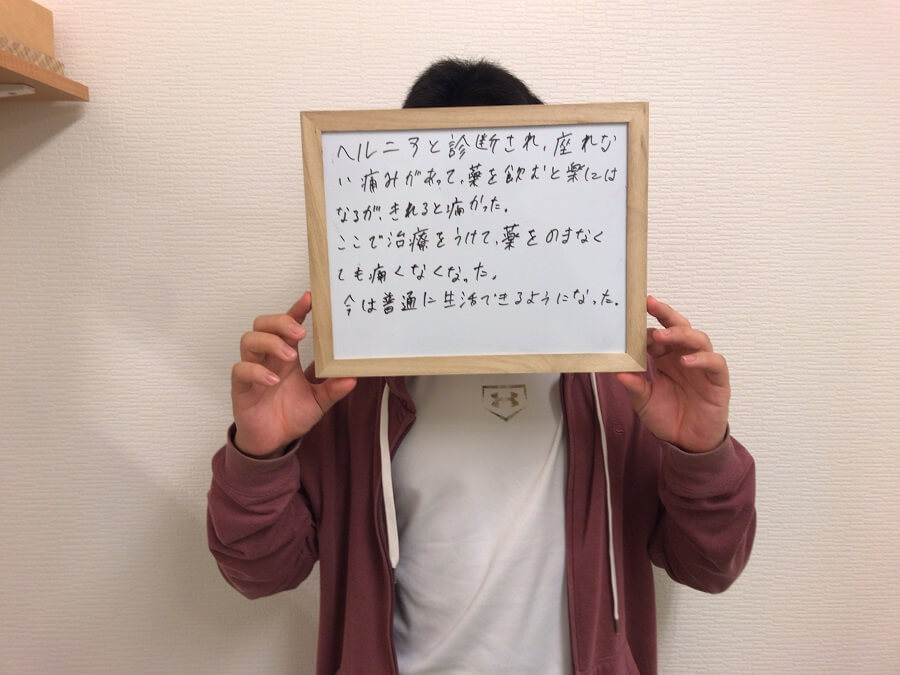 ヘルニアと診断され、座れな
い痛みがあって、薬を飲むと楽には
なるが、きれると痛かった。
ここで治療をうけて、薬をのまなく
ても痛くなくなった。
今は普通に生活できるようになった。